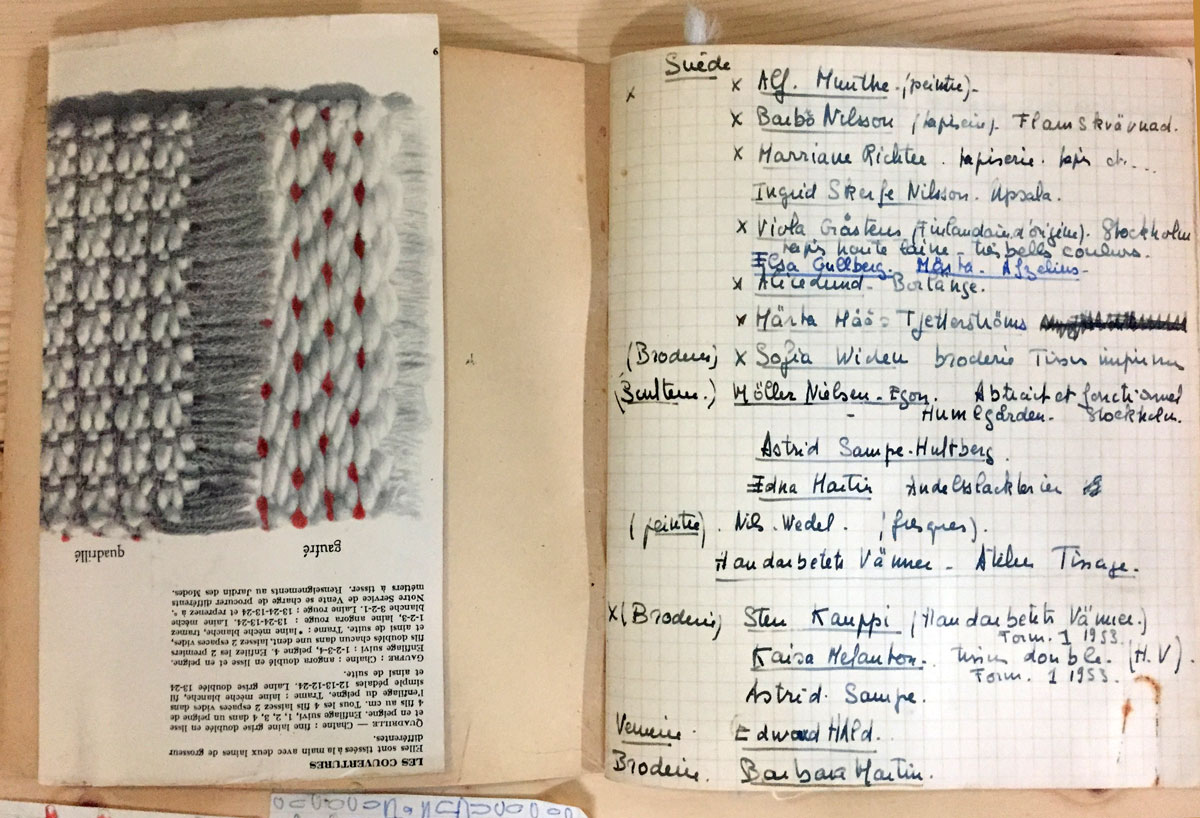 6
quadrillé
gaufré
LES COUVERTURES
Elles sont tissées à la main avec deux laines de grosseur
différentes.
QUADRILLE — Chaîne : fine laine grise doublée en lisse
et en peigne. Enfilage suivi, 1, 2, 3, 4 dans un peigne de
4 fils au cm. Tous les 4 fils laissez 2 espaces vides dans
l'enfilage du peigne. Trame : laine mèche blanche, fil
simple pédales 12-13-12-24. Laine grise doublée 13-24
et ainsi de suite.
GAUFRE : Chaîne : angora doublé en lisse et en peigne.
Enfilage suivi : 1-2-3-4, peigne 4. Enfilez les 2 premiers
fils doublés chacun dans une dent, laissez 2 espaces vides,
et ainsi de suite. Trame : * laine mèche blanche, tramez
1-2-3, laine angora rouge : 13-24-13-24. Laine mèche
blanche 3-2-1. Laine rouge : 13-24-13-24 et reprenez à *.
Notre Service de Vente se charge de procurer différents
métiers à tisser. Renseignements au Jardin des Modes.
Suède
x x Alf. Munthe (peintre)
x Barbö Nilsson (tapisserie). Flamskvävnad.
x Marriane Richter. tapiserie. tapis
Ingrid Skerfe Nilsson. Upsala.
x Viola Gråstens (Finlandaise d'origine). Stockholm
tapis haute laine - très belles couleurs.
Elsa Gullberg. Märta. Afzelius-
x Alice Lund - Borlänge.
x Märta Måås Fjetterströms
(Broderies) x Sofia Widen broderie Tissus imprimés
(Sculteur.) Möller Nielsen - Egon. Abstrait et fonctionnel
- Humlegården. Stockholm.
Astrid Sampe-Hultberg.
Edna Martin
(peintre). Nils. Wedel. (fresques).
Handarbetets Vänner - Atelier Tissage.
x (Broderies) Sten Kauppi (Handarbetets Vänner.)
Form. 1 1953.
Kaisa Melanton. tissus double. (H.V).
Form. 1 1953.
Astrid. Sampe.
Verrerie. Edward Hald.
Broderie. Barbara Martin.